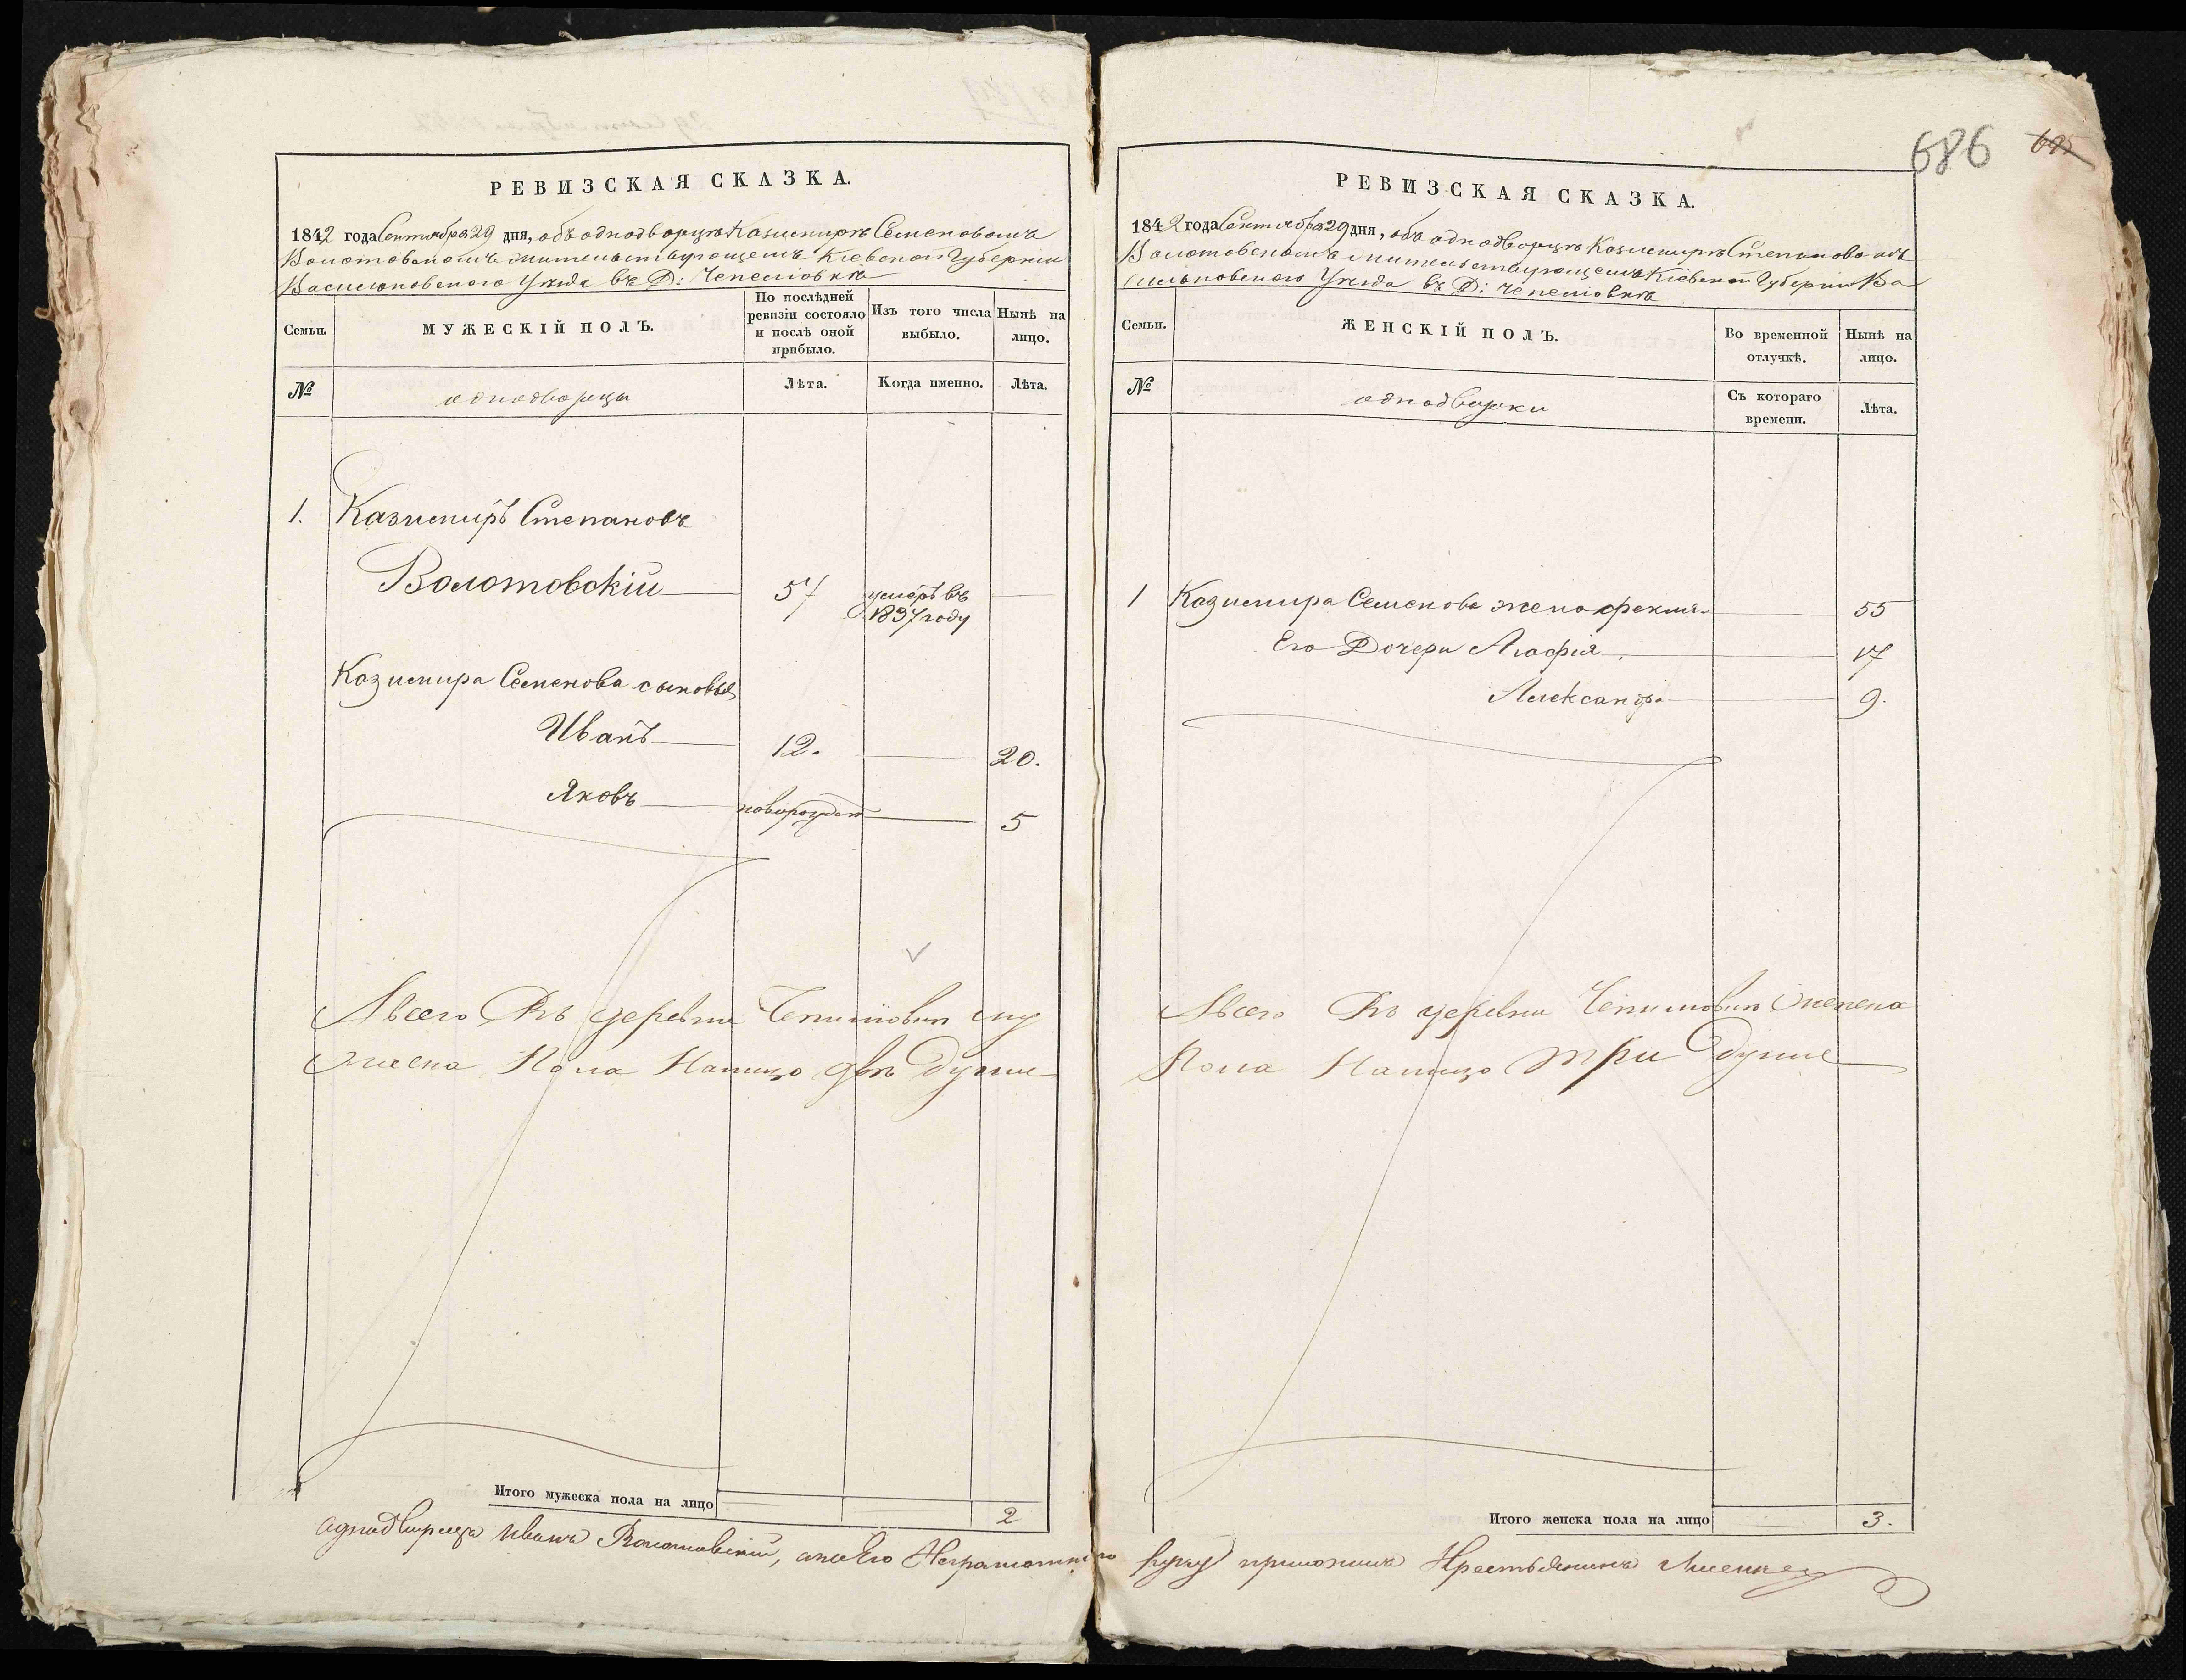 686
РЕВИЗСКАЯ СКАЗКА.
1842 года Сентября 29 дня, объ однодворцѣ Казимирѣ Семеновомъ
Волотовскомъ жительствующемъ Кіевской Губерніи
Василковского Уезда въ Д: Чепелiовкѣ
Семьи.
МУЖЕСКІЙ ПОЛЪ.
По послѣдней ревизіи состояло и послѣ оной прибыло.
Изъ того числа выбыло.
Нынѣ на лицо.
№
однодворцы
Лѣта.
Когда именно.
Лѣта.
1. Казимиръ Степановъ
Волотовскій 57 умеръ въ
1837 году
Казимира Семенова сыновья
Иванъ 12. 20.
Яковъ новорожден 5
Авсего Въ деревни му
жеска Пола Налицо двѣ Души
Итого мужеска пола на лицо 2
Иванъ Волотовскій, анаЕго Неграмотного
РЕВИЗСКАЯ СКАЗКА.
1842 года Сентября 29 дня, объ однодворцѣ Казимирѣ Степановомъ
Волотовскомъ жительствующемъ Кіевской Губерніи Ва
силковского Уезда въ Д: Чепелiовкѣ
Семьи.
ЖЕНСКІЙ ПОЛЪ.
Во временной отлучкѣ.
Нынѣ на лицо.
№
однодворки
Съ котораго времени.
Лѣта.
1 Казимира Семенова жена Фекла 55
Его Дочери Агафія 17
Александра 9.
Авсего Въ деревни Женска
Пола Налицо три Души
Итого женска пола на лицо 3.
руку приложилъ Крестьянинъ